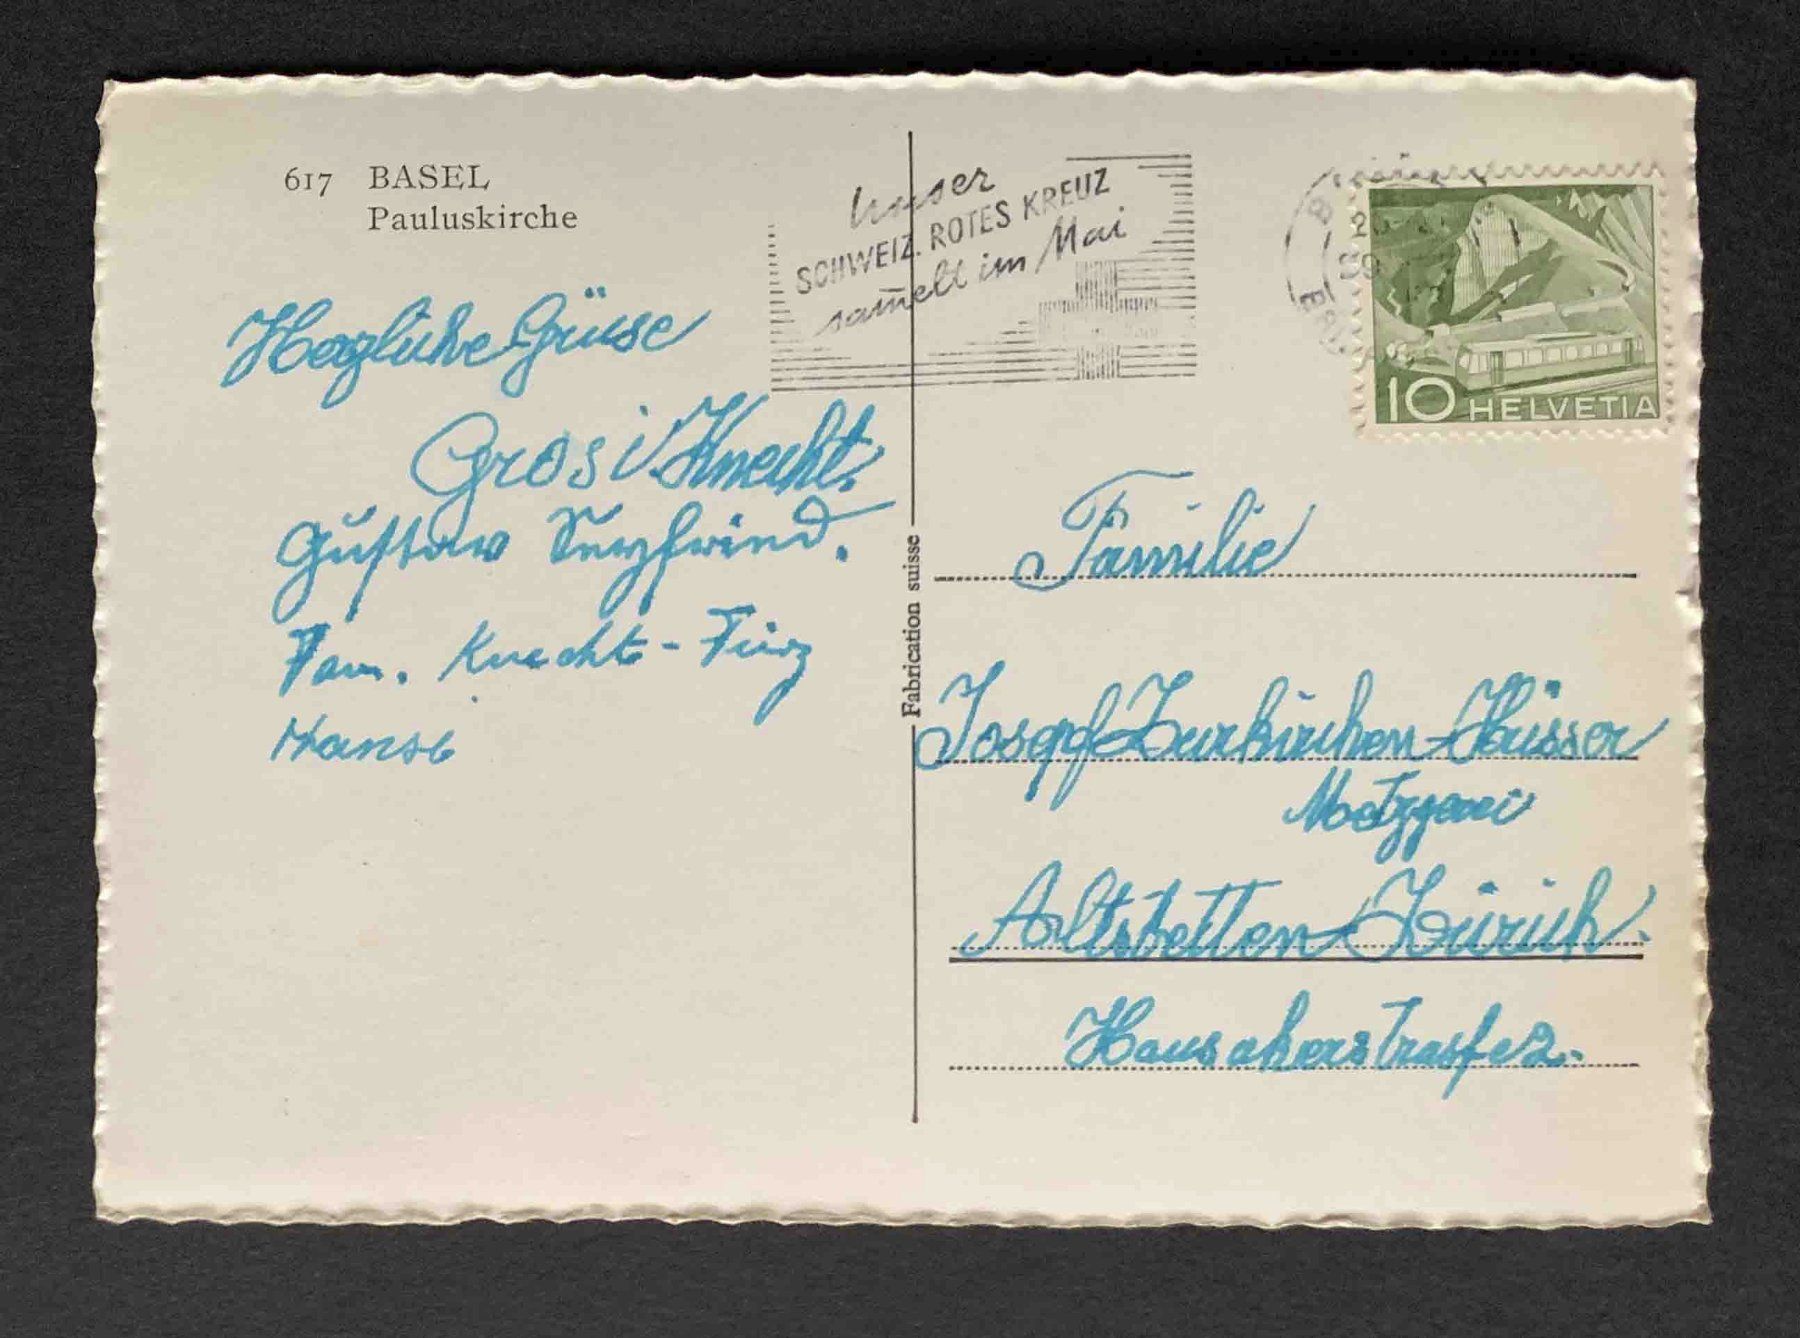 617 BASEL
Pauluskirche
Unser
SCHWEIZ. ROTES KREUZ
sam̅elt im Mai
10 HELVETIA
Herzliche Grüse
Grosi Knecht.
Gustav Seyfried.
Fam. Knecht-Fürz
Hansi
Fabrication suisse
Familie
Josepf Zurkirchen-Hüsser
Metzgerei
Altstetten-Zürich.
Hausakerstrasse 2.